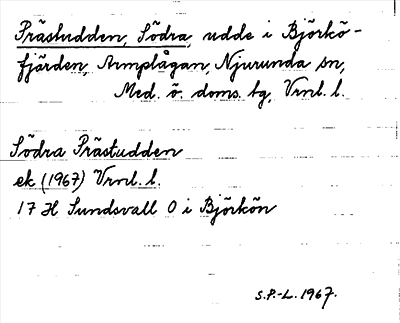 Prästudden, Södra, udde i Björkö-
fjärden, Armplågan, Njurunda sn,
Med. ö. doms. tg, Vrnl. l.
Södra Prästudden
ek (1967) Vrnl. l.
17 H Sundsvall O i Björkön
S.P.-L. 1967.